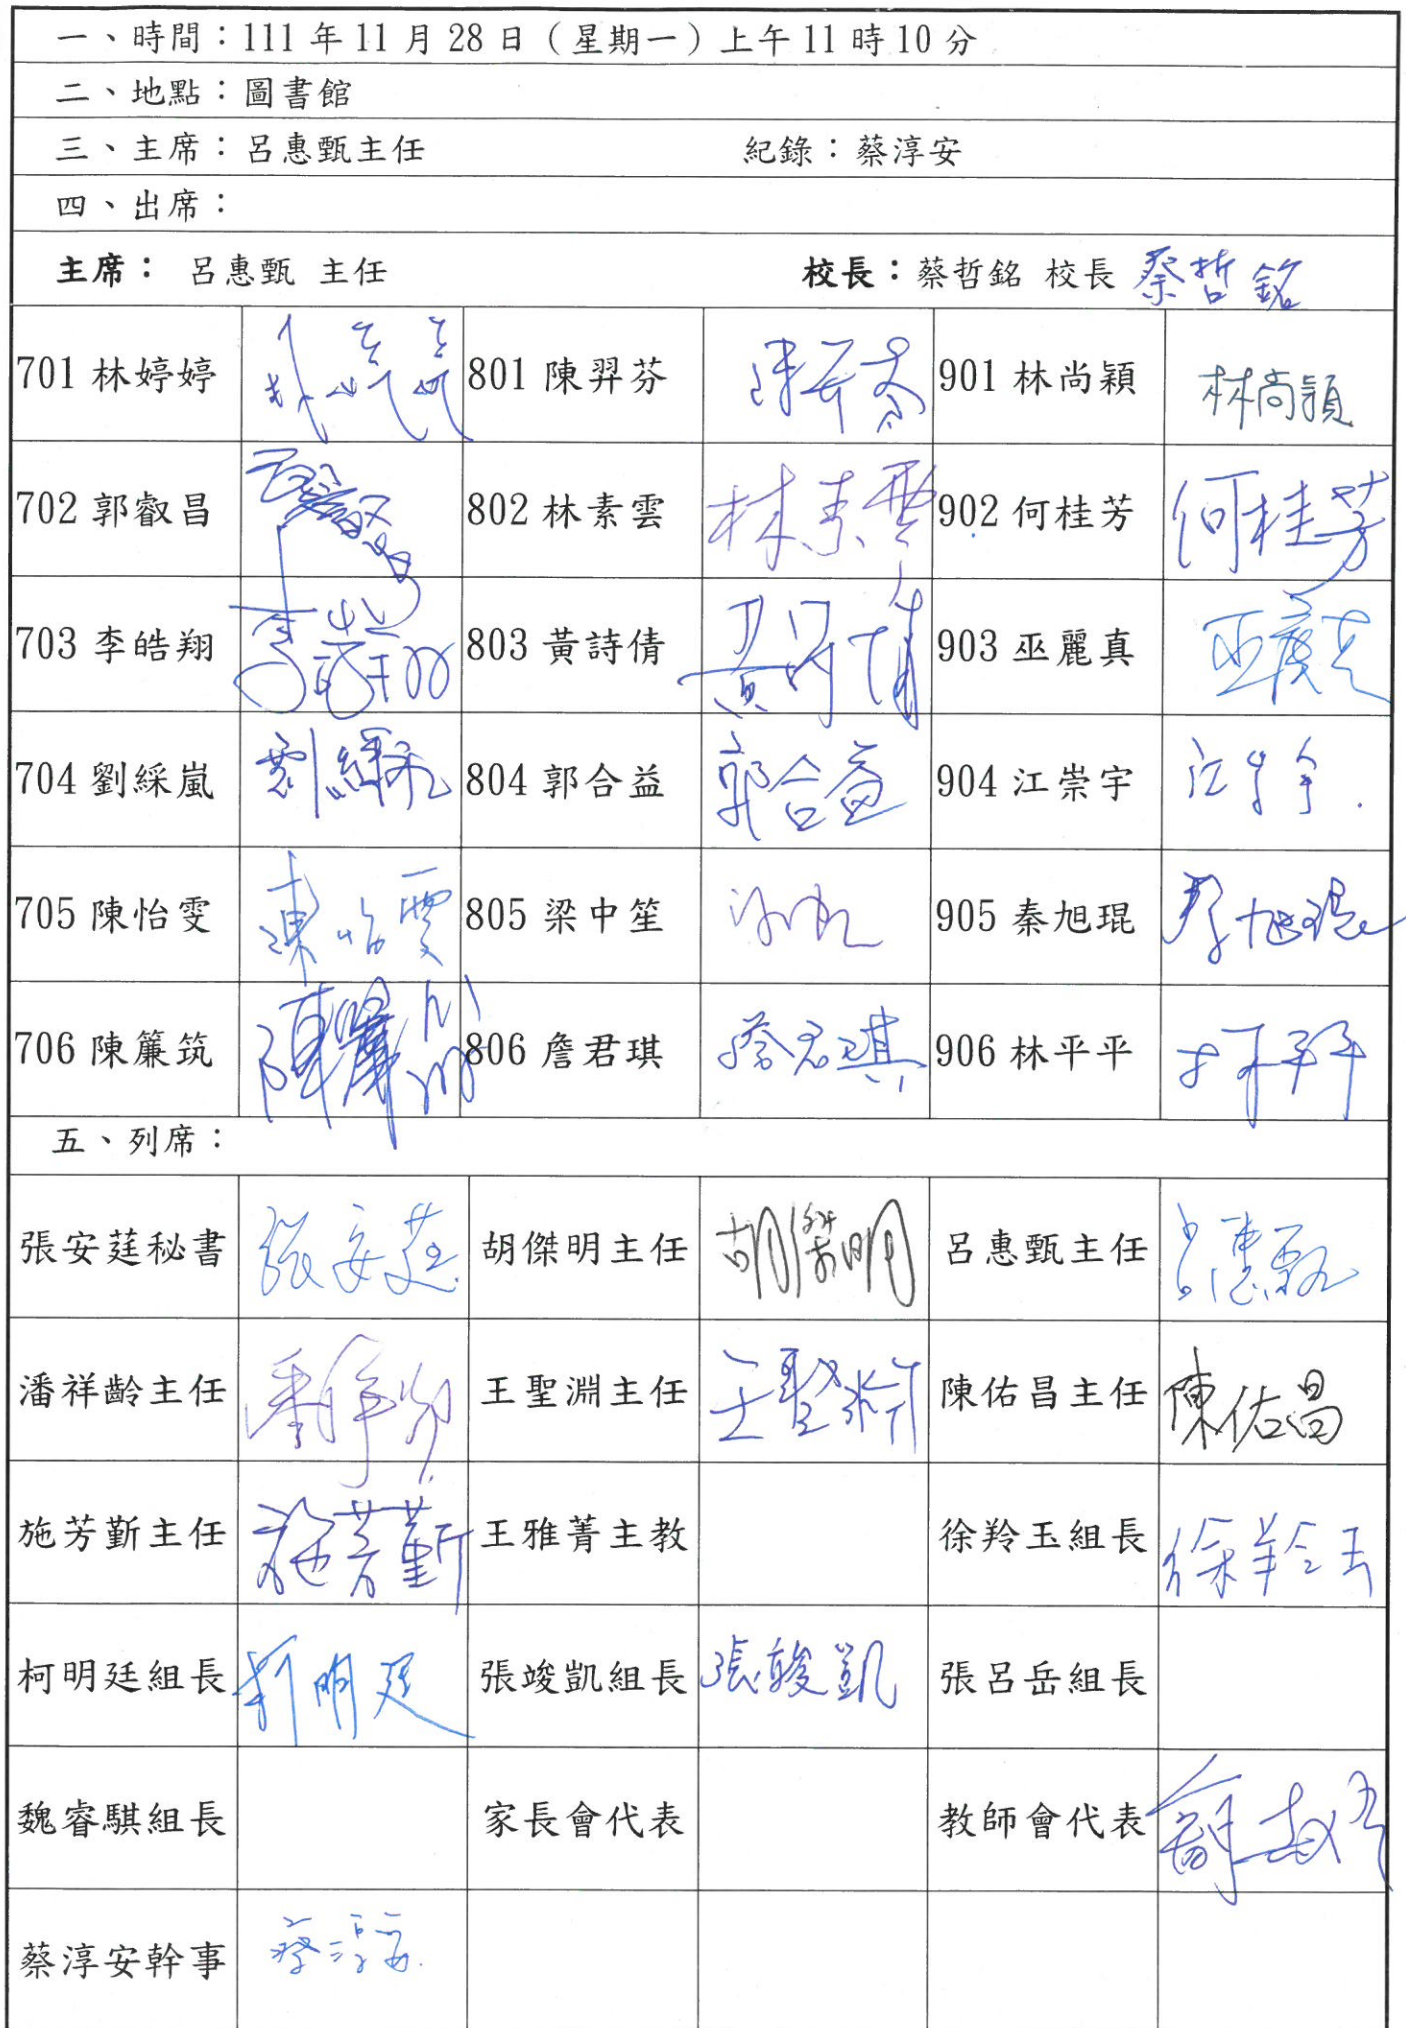 一、時間：111 年 11 月 28 日（星期一）上午 11 時 10 分
二、地點：圖書館
三、主席：呂惠甄主任 紀錄：蔡淳安
四、出席：
主席： 呂惠甄 主任 校長：蔡哲銘 校長 蔡哲銘
701 林婷婷 801 陳羿芬 陳羿芬 901 林尚穎 林尚穎
702 郭叡昌 802 林素雲 林素雲 902 何桂芳 何桂芳
703 李皓翔 李皓翔 803 黃詩倩 黃詩倩 903 巫麗真 巫麗真
704 劉綵嵐 劉綵嵐 804 郭合益 郭合益 904 江崇宇 江崇宇
705 陳怡雯 陳怡雯 805 梁中笙 905 秦旭琨 秦旭琨
706 陳簾筑 陳簾筑 806 詹君琪 906 林平平 林平平
五、列席：
張安莛秘書 張安莛 胡傑明主任 胡傑明 呂惠甄主任 呂惠甄
潘祥齡主任 潘祥齡 王聖淵主任 王聖淵 陳佑昌主任 陳佑昌
施芳勤主任 施芳勤 王雅菁主教 徐羚玉組長 徐羚玉
柯明廷組長 柯明廷 張竣凱組長 張竣凱 張呂岳組長
魏睿騏組長 家長會代表 教師會代表
蔡淳安幹事 蔡淳安